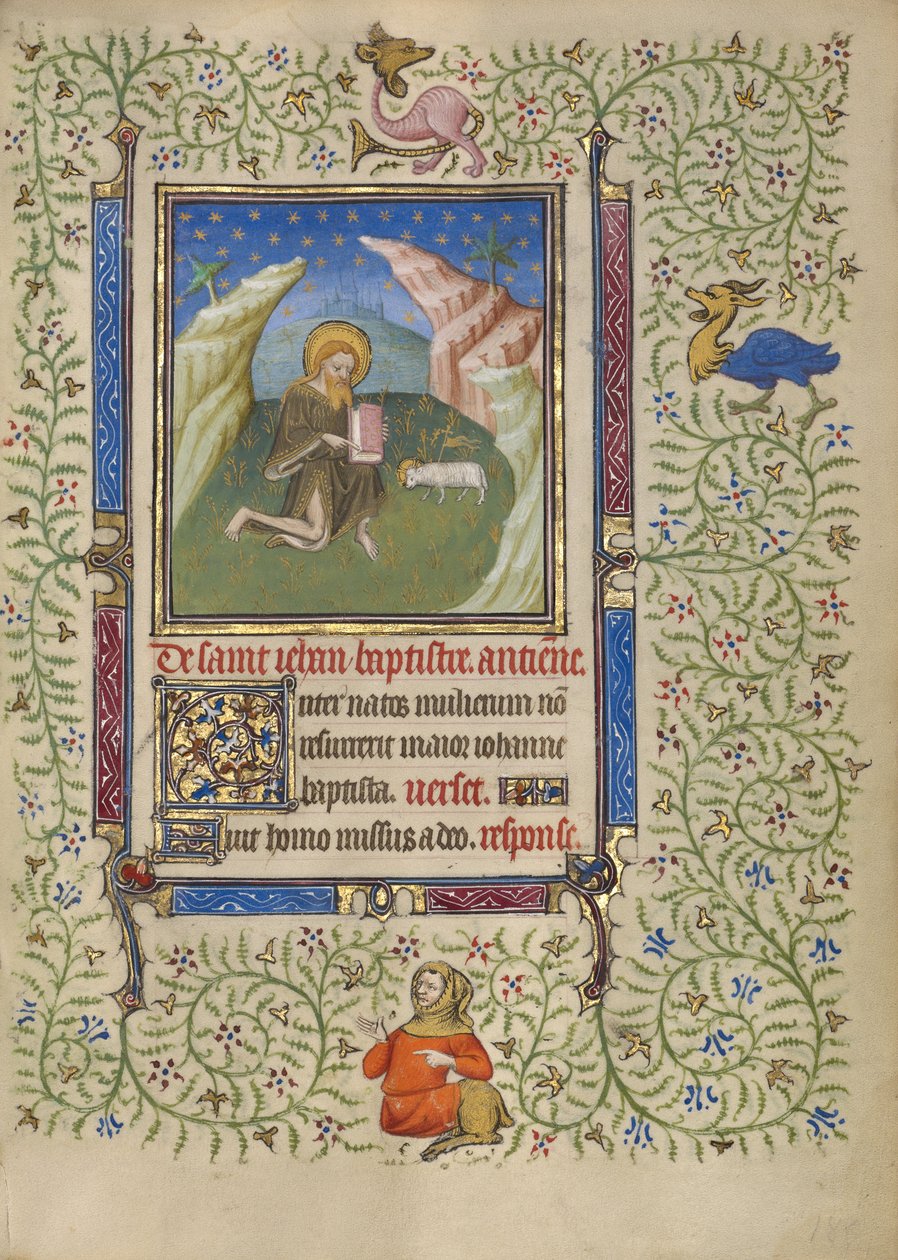 De saint iehan baptistre. antiēne.
Inter natos mulierum nō
resurrexit maior iohanne
baptista. verset.
Fuit homo missus a deo. response.